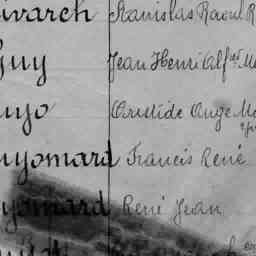 ivarch Stanislas Raoul R
Guy Jean Henri Alfed M
uyo Aristide Ange M
uyomard Francis René
yomard René Jean